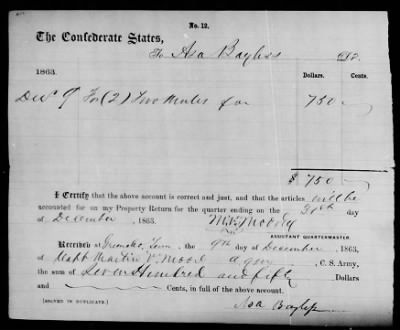 No. 12.
The Confederate States,
To Asa Bayliss Dr.
1863. Dollars. Cents.
Dec 9 For (2) Two Mules for 750
$ 750
I Certify that the above account is correct and just, and that the articles will be
accounted for on my Property Return for the quarter ending on the 31st day
of December, 1863. M. V. Moore
ASSISTANT QUARTERMASTER
Received at Tenn. the 9th day of December 1863,
of Capt Martin V. Moore a qm, C. S. Army,
the sum of Seven Hundred and fifty Dollars
and Cents, in full of the above account.
[SIGNED IN DUPLICATE.] Asa Bayliss